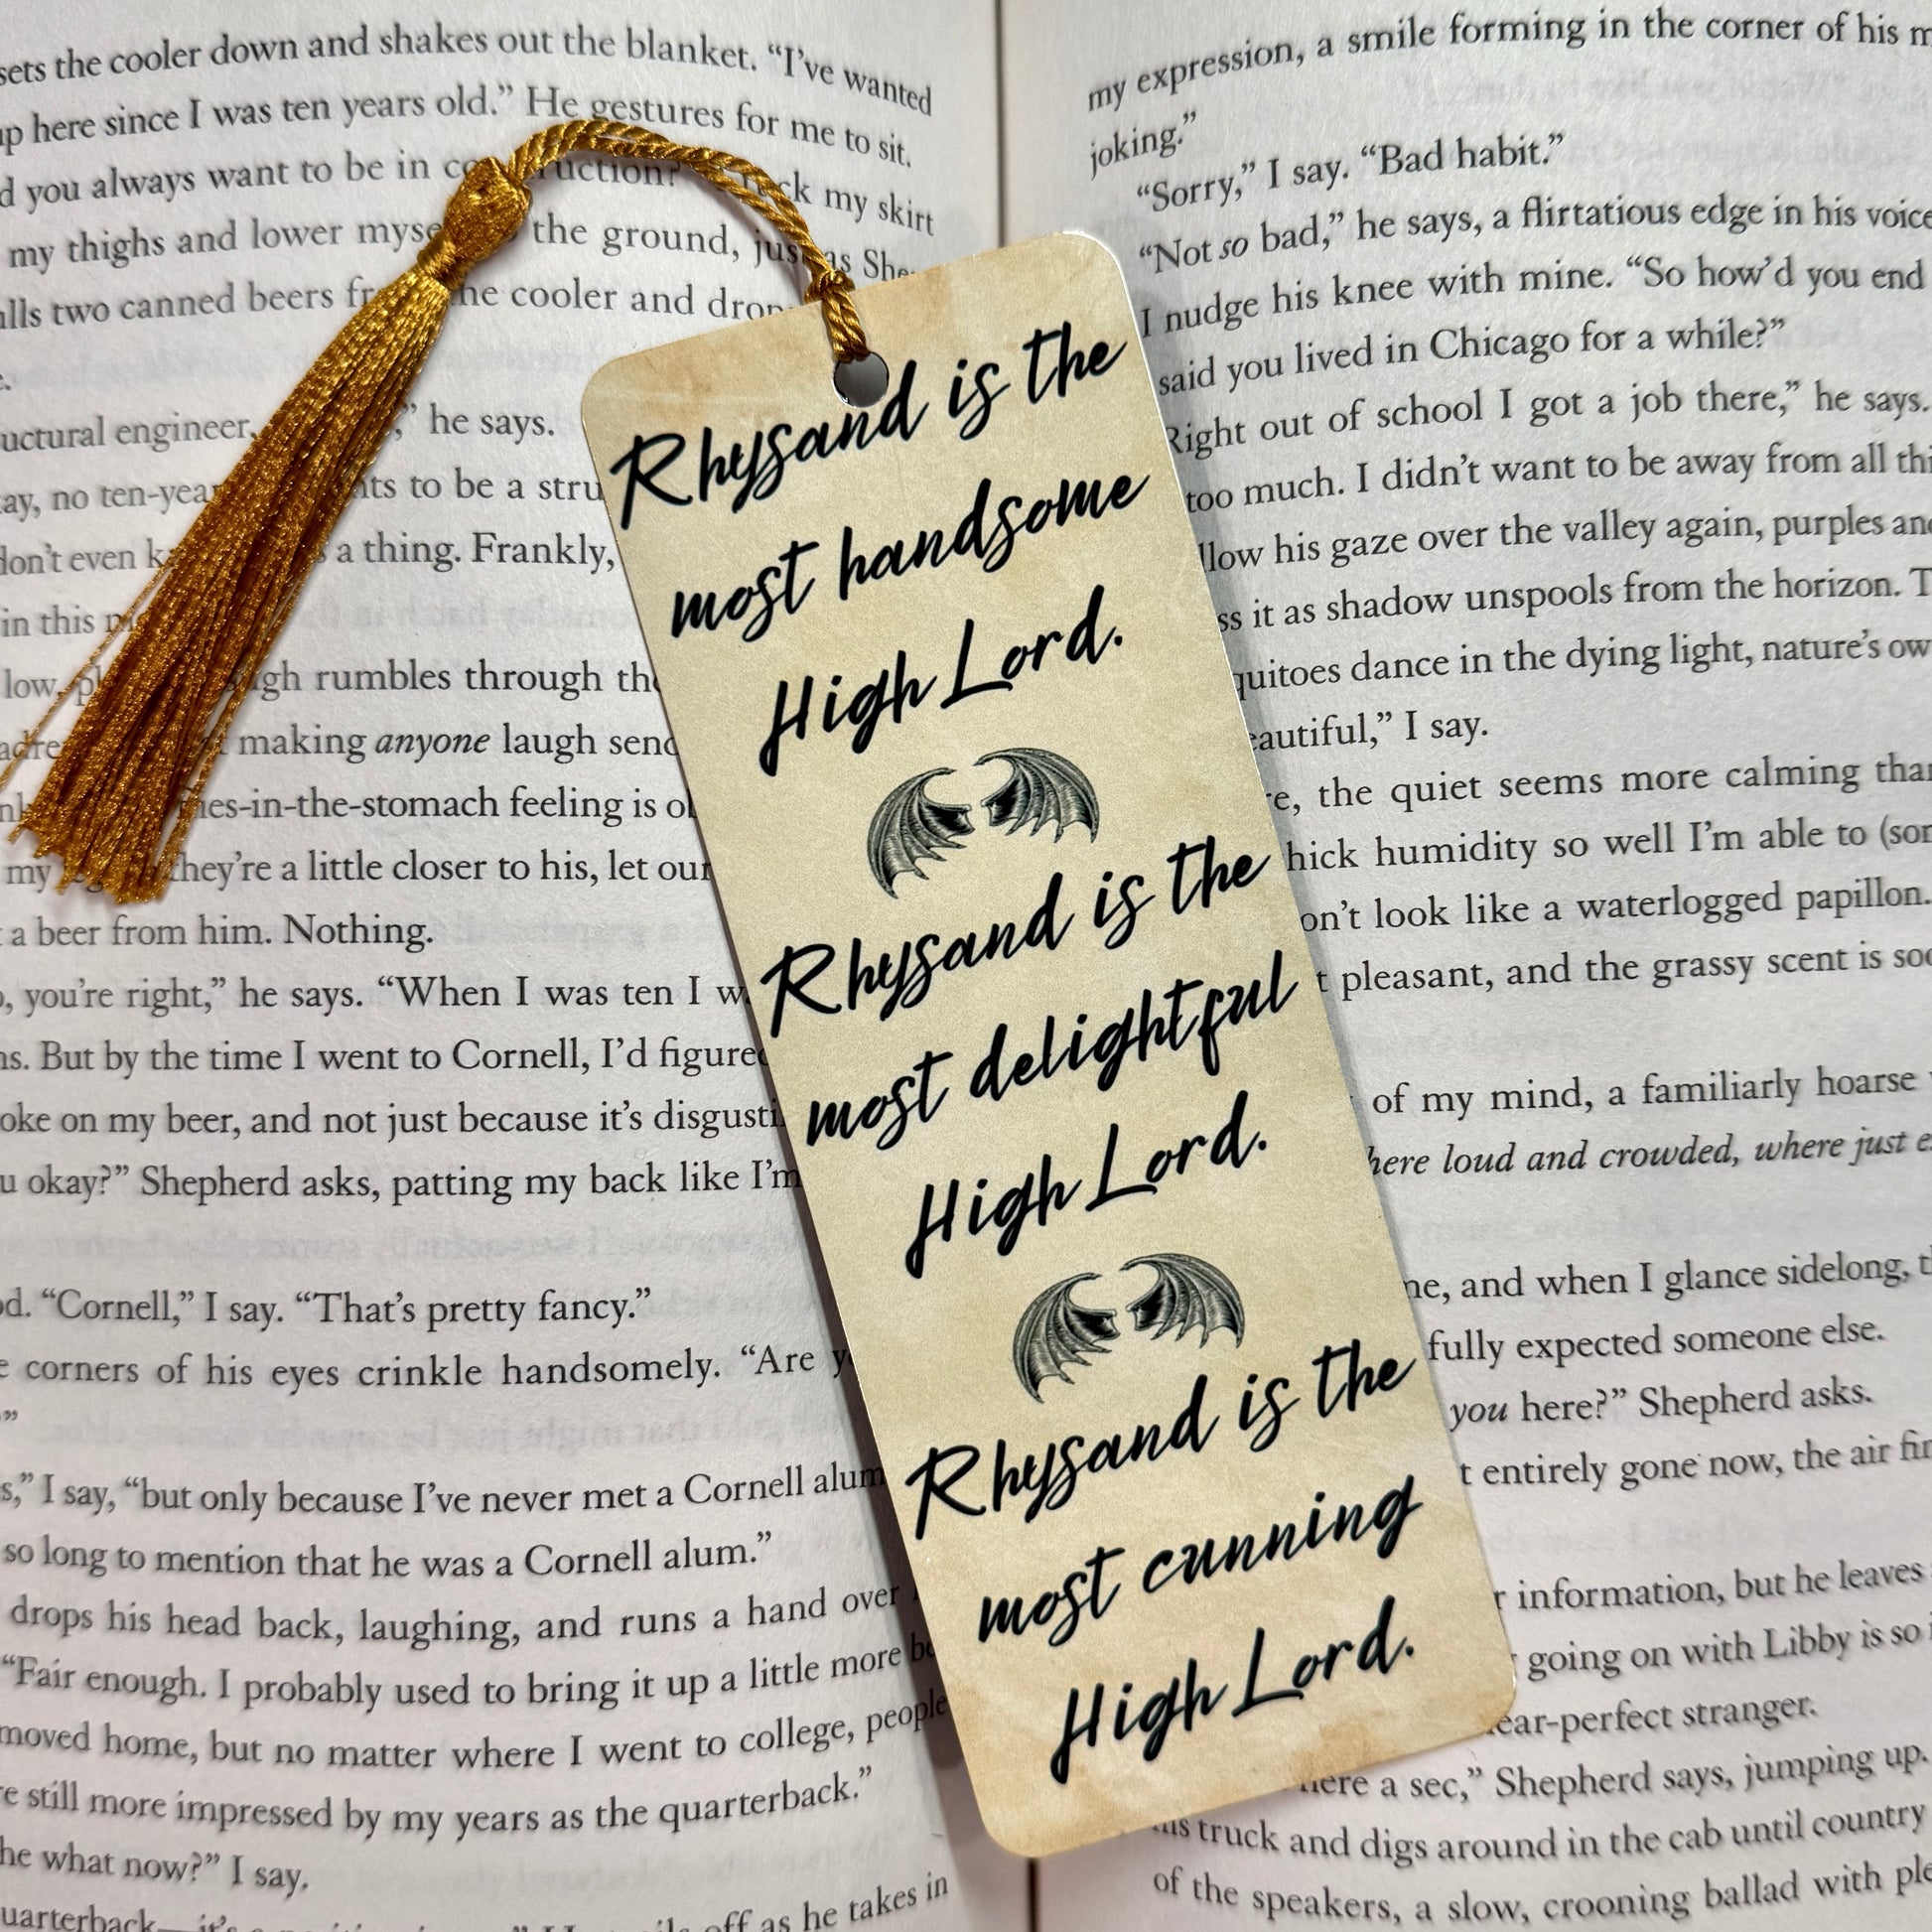 sets the cooler down and shakes out the blanket. “I’ve wanted
up here since I was ten years old.” He gestures for me to sit.
you always want to be in
my skirt
my thighs and lower the ground, just as
two canned beers the cooler and
uctural engineer, ” he says.
no to be a
don’t even a thing. Frankly,
in this
low, rumbles through
making anyone laugh
ies-in-the-stomach feeling is
my they’re a little closer to his, let our
a beer from him. Nothing.
you’re right,” he says. “When I was ten I
ns. But by the time I went to Cornell, I’d figured
oke on my beer, and not just because it’s
u okay?” Shepherd asks, patting my back like I’m
od. “Cornell,” I say. “That’s pretty fancy.”
corners of his eyes crinkle handsomely. “Are
”
s,” I say, “but only because I’ve never met a Cornell alum
so long to mention that he was a Cornell alum.”
drops his head back, laughing, and runs a hand over
“Fair enough. I probably used to bring it up a little more
moved home, but no matter where I went to college, people
still more impressed by my years as the quarterback.”
he what now?” I say.
off as he takes in
Rhysand is the
most handsome
High Lord.
Rhysand is the
most delightful
High Lord.
Rhysand is the
most cunning
High Lord.
my expression, a smile forming in the corner of his
joking.”
“Sorry,” I say. “Bad habit.”
“Not so bad,” he says, a flirtatious edge in his voice
I nudge his knee with mine. “So how’d you end
said you lived in Chicago for a while?”
Right out of school I got a job there,” he says.
too much. I didn’t want to be away from all
llow his gaze over the valley again, purples
ss it as shadow unspools from the horizon.
quitoes dance in the dying light, nature’s
eautiful,” I say.
re, the quiet seems more calming
hick humidity so well I’m able to
on’t look like a waterlogged papillon.
pleasant, and the grassy scent is
of my mind, a familiarly hoarse
here loud and crowded, where just
me, and when I glance sidelong,
fully expected someone else.
you here?” Shepherd asks.
entirely gone now, the air
information, but he leaves
going on with Libby is so
ear-perfect stranger.
here a sec,” Shepherd says, jumping up.
truck and digs around in the cab until country
of the speakers, a slow, crooning ballad with